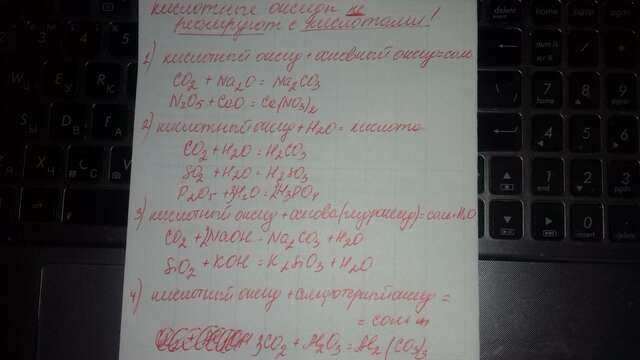 кислотные оксиды не
реагируют с кислотами!
1) кислотный оксид + основный оксид = соль
CO2 + Na2O = Na2CO3
N2O5 + CaO = Ca(NO3)2
2) кислотный оксид + H2O = кислота
CO2 + H2O = H2CO3
SO2 + H2O = H2SO3
P2O5 + 3H2O = 2H3PO4
3) кислотный оксид + основа (гидроксид) = соль + H2O
CO2 + 2NaOH = Na2CO3 + H2O
SiO2 + KOH = K2SiO3 + H2O
4) кислотный оксид + амфотерный оксид =
= соль
3CO2 + Al2O3 = Al2(CO3)3